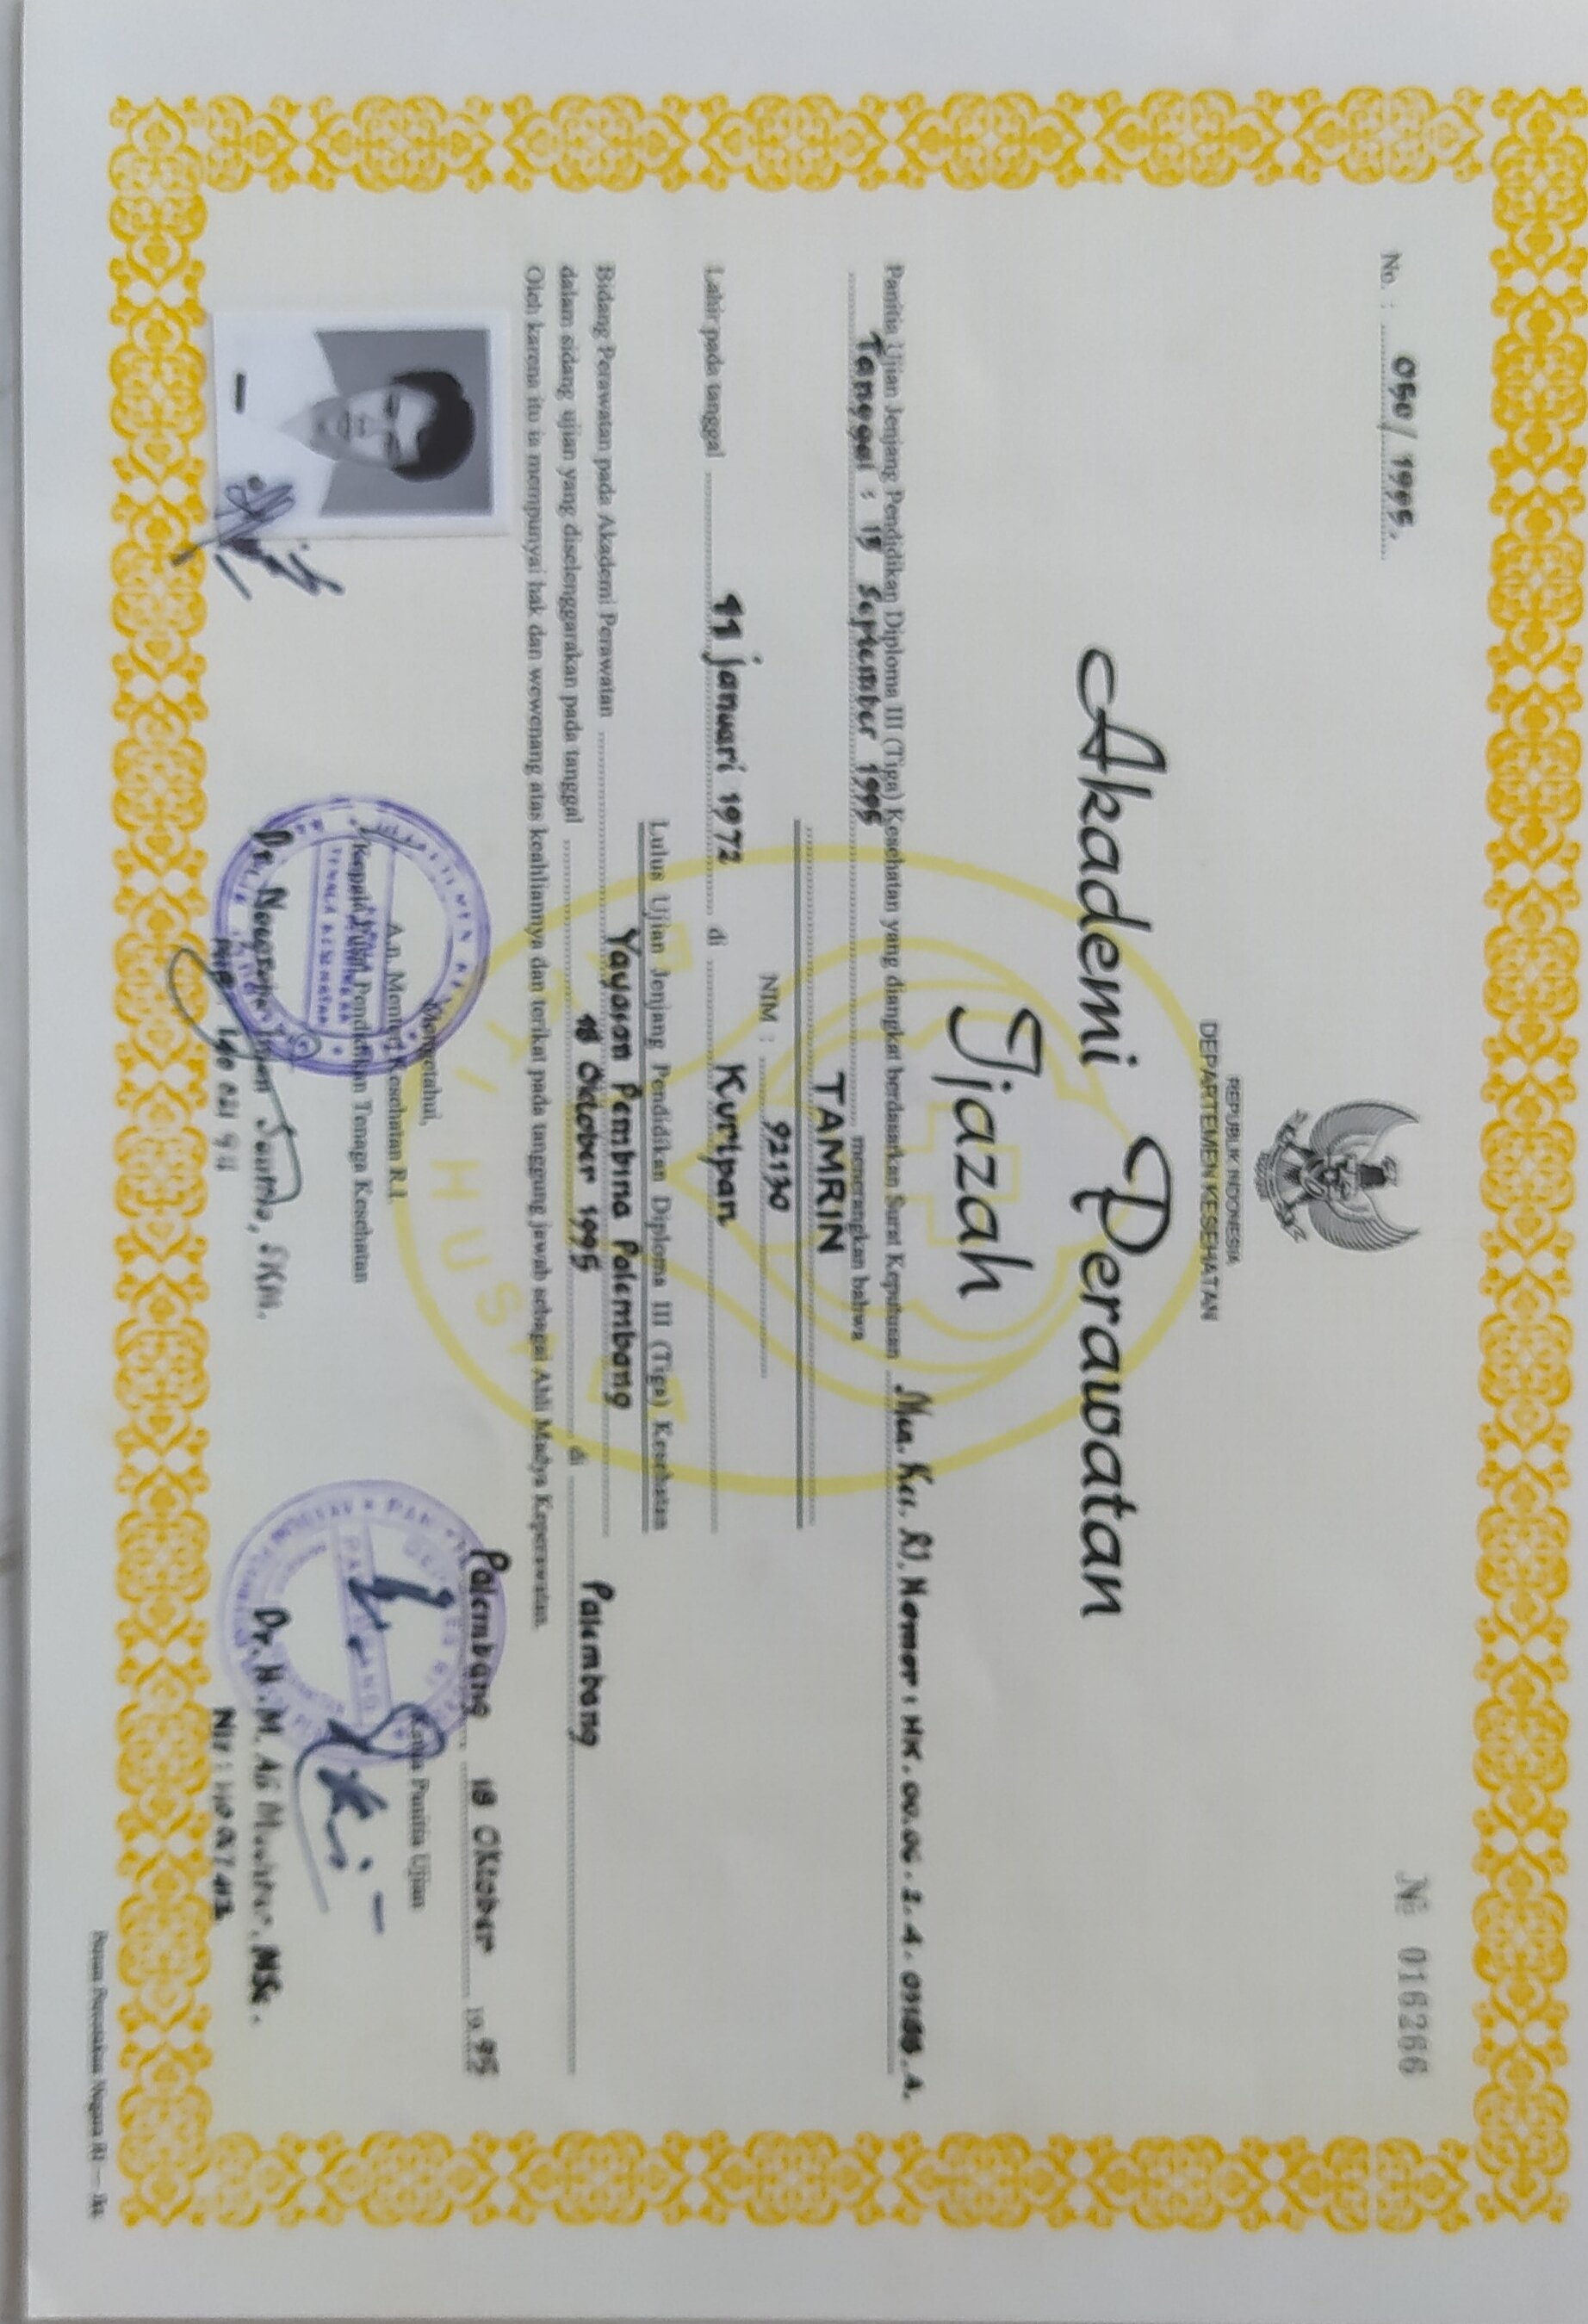 No. : 050/ 1995.
№ 016266
REPUBLIK INDONESIA
DEPARTEMEN KESEHATAN
Akademi Perawatan
Ijazah
Panitia Ujian Jenjang Pendidikan Diploma III (Tiga) Kesehatan yang diangkat berdasarkan Surat Keputusan Men. Kes. RI. Nomor : HK. 00.06. 2. 4.
Tanggal : September 1995 menerangkan bahwa
TAMRIN
NIM : 92130
Lahir pada tanggal 11 Januari 1972 di Kuripan
Lulus Ujian Jenjang Pendidikan Diploma III (Tiga) Kesehatan
Bidang Perawatan pada Akademi Perawatan Yayasan Pembina Palembang
dalam sidang ujian yang diselenggarakan pada tanggal 18 Oktober 1995 di Palembang
Oleh karena itu ia mempunyai hak dan wewenang atas keahliannya dan terikat pada tanggung jawab sebagai Ahli Madya Keperawatan.
Palembang 18 Oktober 19 95
Mengetahui,
A.n. Menteri Kesehatan R.I.
Kepala Pusat Pendidikan Tenaga Kesehatan
Ketua Panitia Ujian
TENAGA KESEHATAN
BHAKTI HUSADA
Dr. SKM.
Dr. H. M. Ali MSc.
Perum Percetakan Negara RI — Jkt.